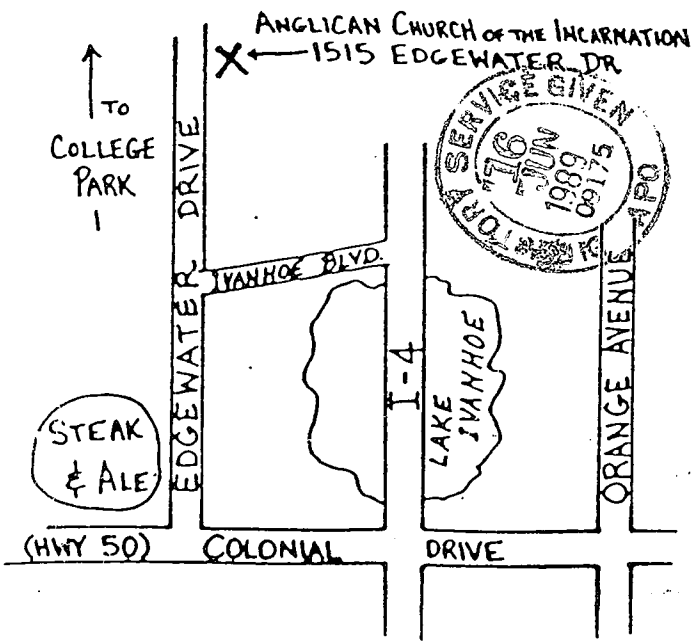 ANGLICAN CHURCH OF THE INCARNATION
1515 EDGEWATER DR
TO
COLLEGE
PARK
EDGEWATER DRIVE
IVANHOE BLVD.
I-4
LAKE
IVANHOE
ORANGE AVENUE
STEAK
& ALE
(HWY 50) COLONIAL DRIVE
TORY SERVICE GIVEN
16
JUN
1989
09175
APO